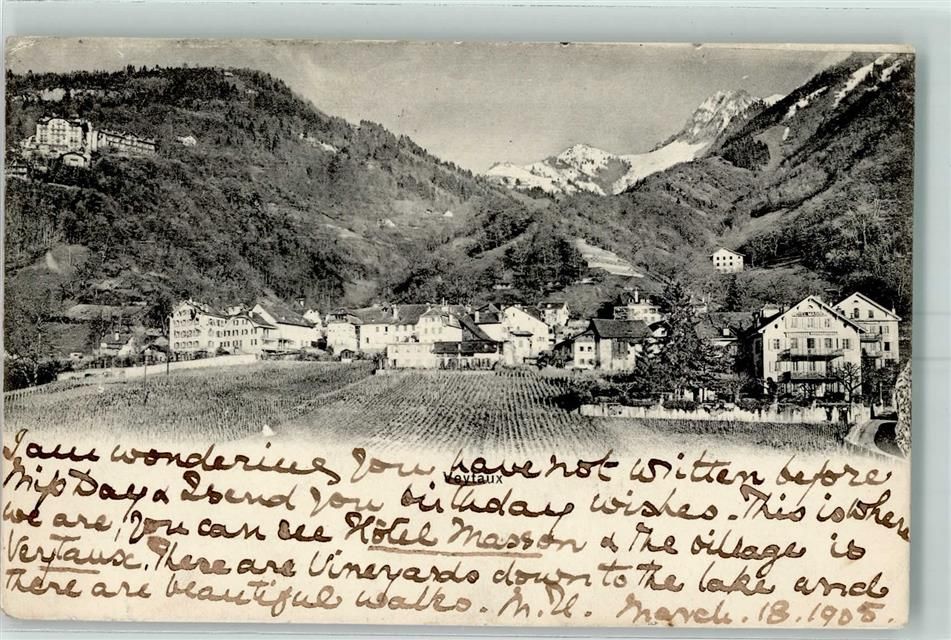 HOTEL MASSON
Veytaux
I am wondering you have not written before
Miss Day & I send you birthday wishes. This is where
we are, you can see Hotel Masson & the village is
Veytaux. There are Vineyards down to the lake and
there are beautiful walks. M. March. 18. 1905.